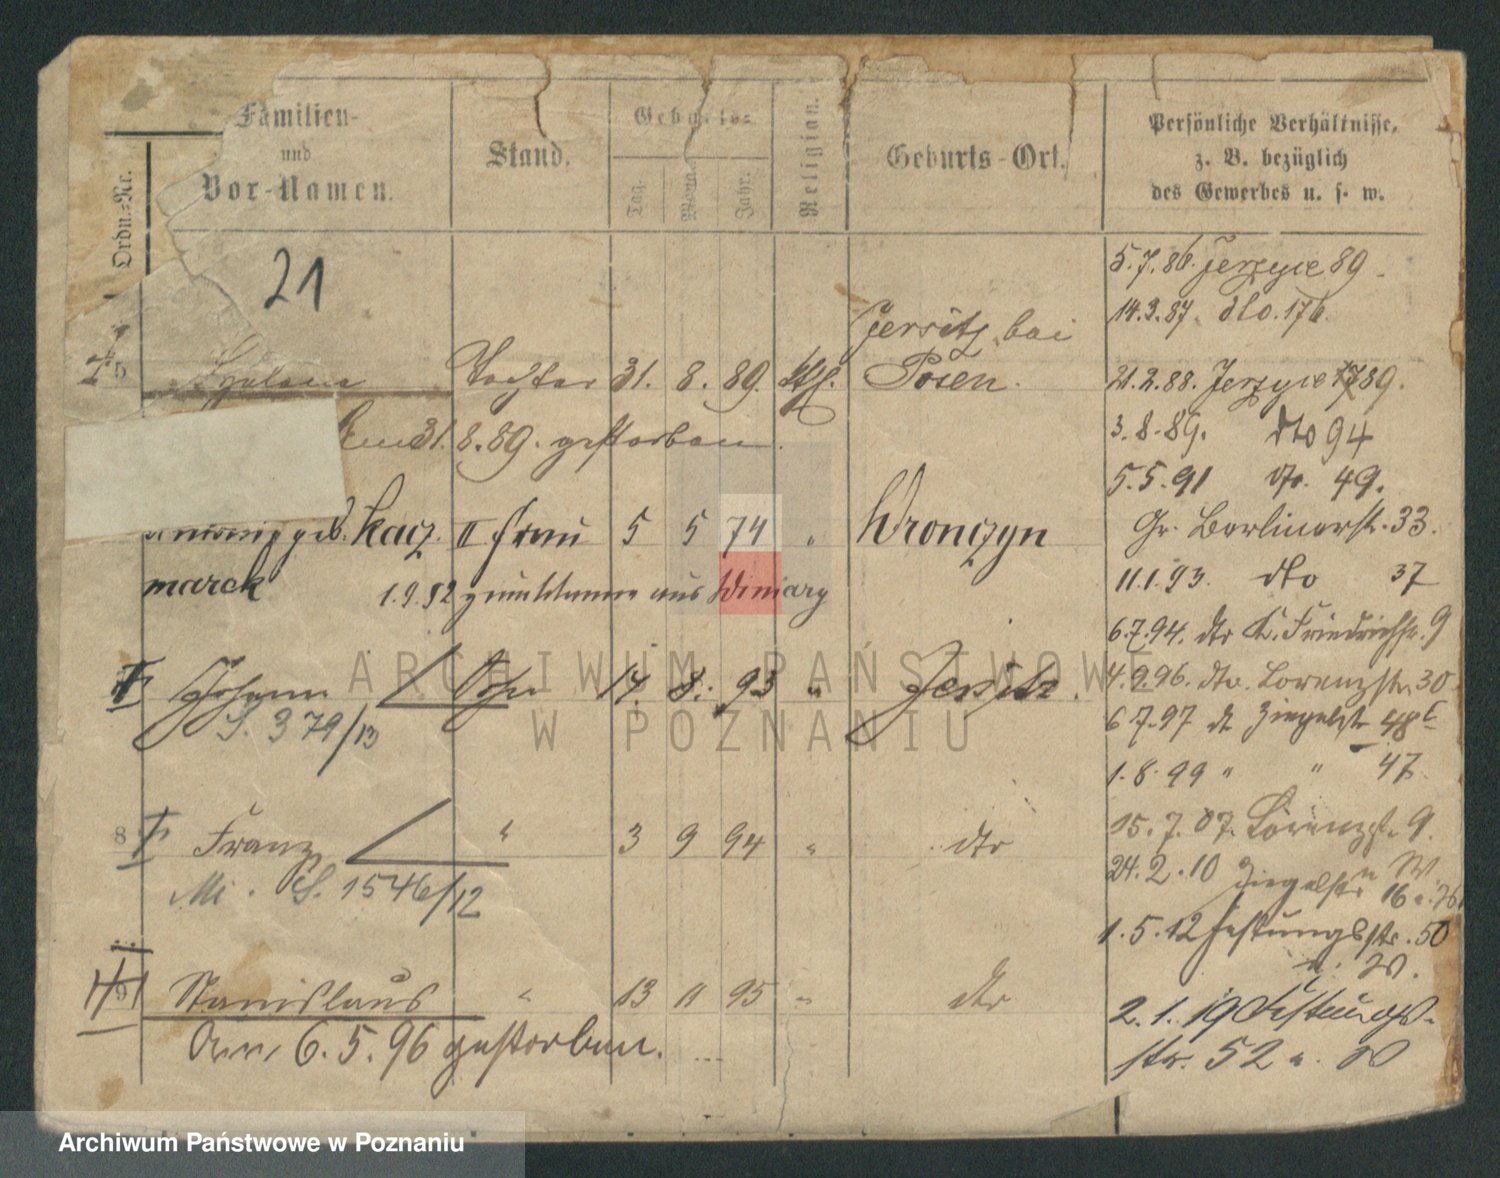 Ordn.-Nr.
Familien-
und
Vor-Namen.
Stand.
Geburts-
Tag.
Mona
Jahr.
Religion.
Geburts-Ort.
Persönliche Verhältnisse,
z. B. bezüglich
des Gewerbes u. s. w.
21
5 Tochter 31. 8. 89. kth. Jersitz bei
Posen.
Am 31. 8. 89. gestorben.
geb. Kacz II Frau 5 5 74 " Wronczyn
marek 1.9.92 aus Winiary
Johann Sohn 17. 8. 93 " Jersitz.
S. 379/13
8 Franz " 3 9 94 " dto
Mi. S. 1546/12
9 Stanislaus " 13 11 95 " dto
Am 6.5.96 gestorben.
5.7.86. Jerzyce 89.
14.3.87. dto. 176.
21.2.88. Jerzyce 89.
3.8.89. dto 94
5.5.91 dto. 49.
Gr. Berlinerstr. 33.
11.1.93. dto 37
6.7.94. dto K. Friedrichstr. 9
4.9.96. dto. Lorenzstr. 30
6.7.97 dt Ziegelstr 48
1.8.99 " " 47
15.7.07. Lorenzstr. 9.
24.2.10 Ziegelstr. 16
W
1.5.12 Festungsstr. 50
W.
2.1.19 Festungs-
str. 52 W
ARCHIWUM PAŃSTWOWE
W POZNANIU
Archiwum Państwowe w Poznaniu